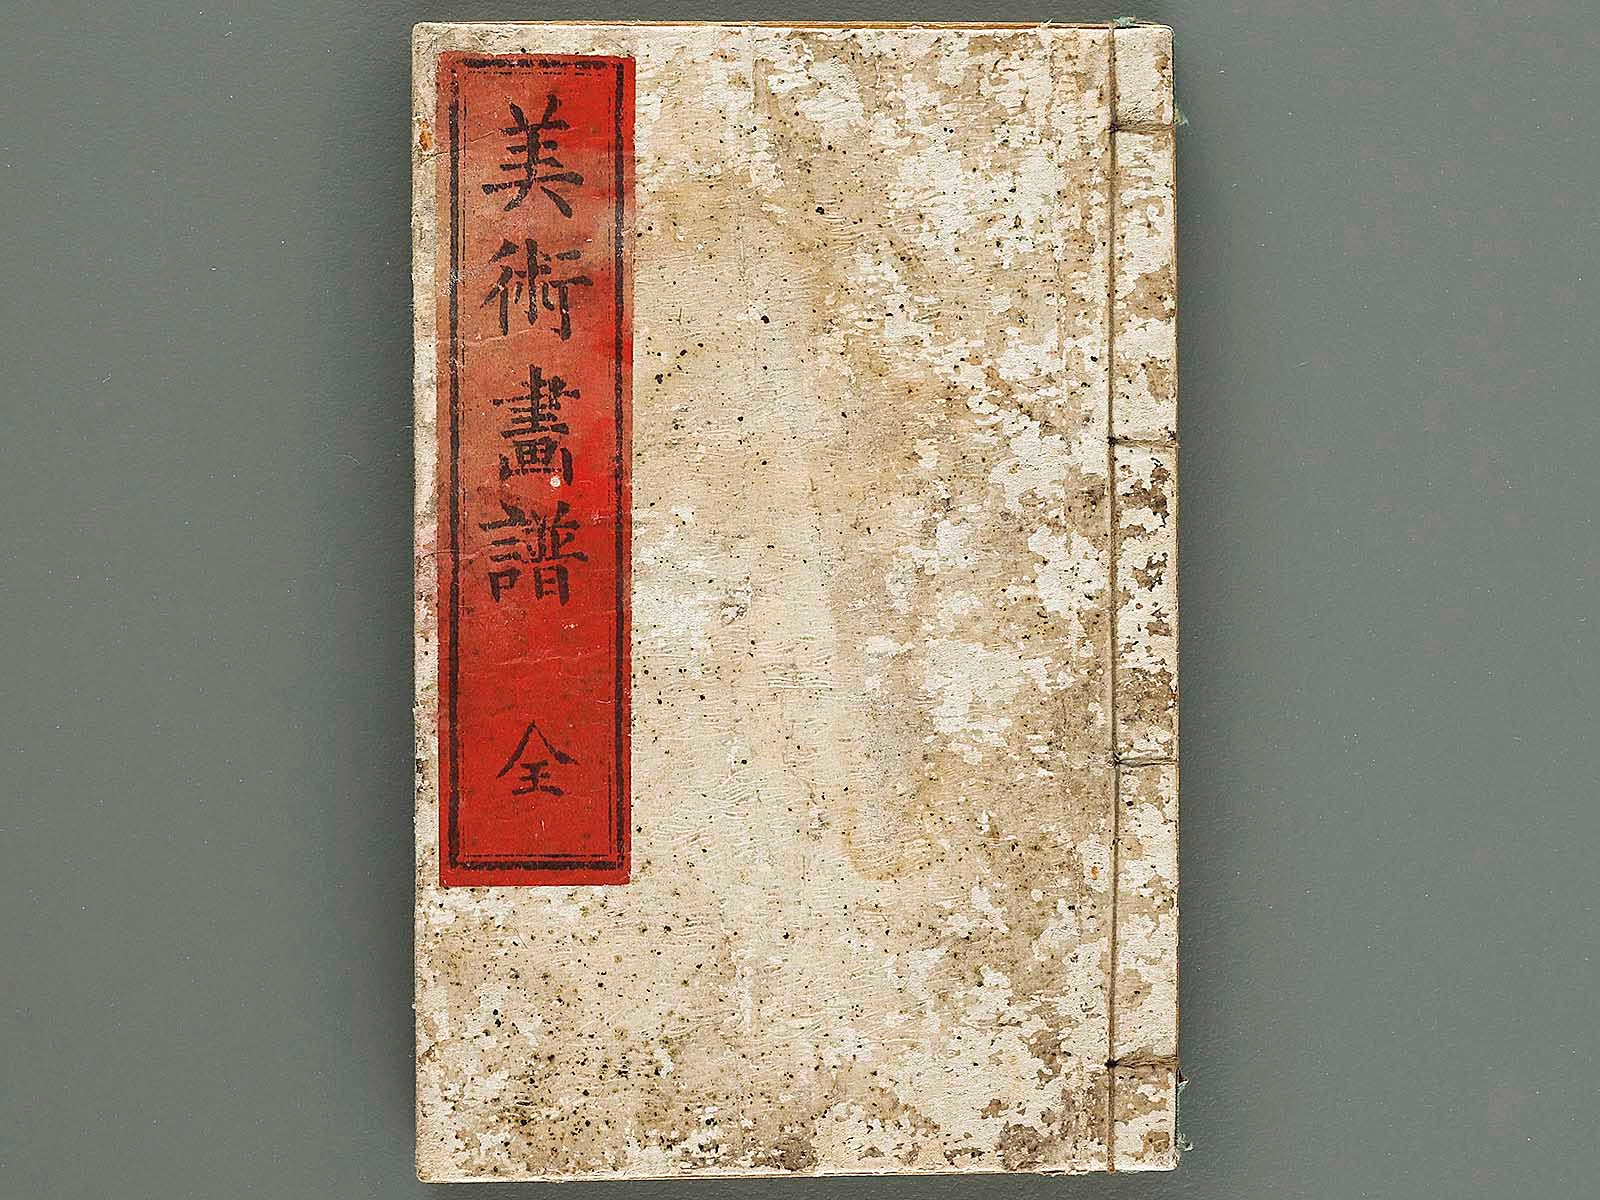 美術畫譜 全